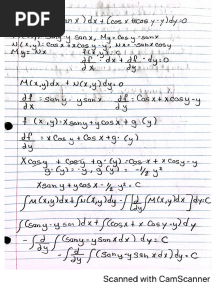 PDF
sin x) dx + (cos x + x cos y - y) dy = 0
sin y - y sin x, My = cos y - sin x
N(x, y) = cos x + x cos y - y, Nx = - sin x + cos y
My = Nx f(x, y) = C
df/dx · dx + df/dy · dy = 0
M(x, y) dx + N(x, y) dy = 0
df/dx = sin y - y sin x df/dy = cos x + x cos y - y
f(x, y) = x sin y + y cos x + g(y)
df/dy = x cos y + cos x + g'(y)
x cos y + cos x + g'(y) = cos x + x cos y - y
g'(y) = -y, g(y) = -1/2 y²
x sin y + y cos x - 1/2 y² = C
∫M(x,y)dx + ∫N(x,y)dy - ∫[d/dy ∫M(x,y)dx]dy = C
∫(sin y - y sin x)dx + ∫(cos x + x cos y - y)dy
- ∫ d/dy ∫(sin y - y sin x dx) dy = C
- ∫ d/dy ∫(sin y - y sin x dx) dy = C
Scanned with CamScanner